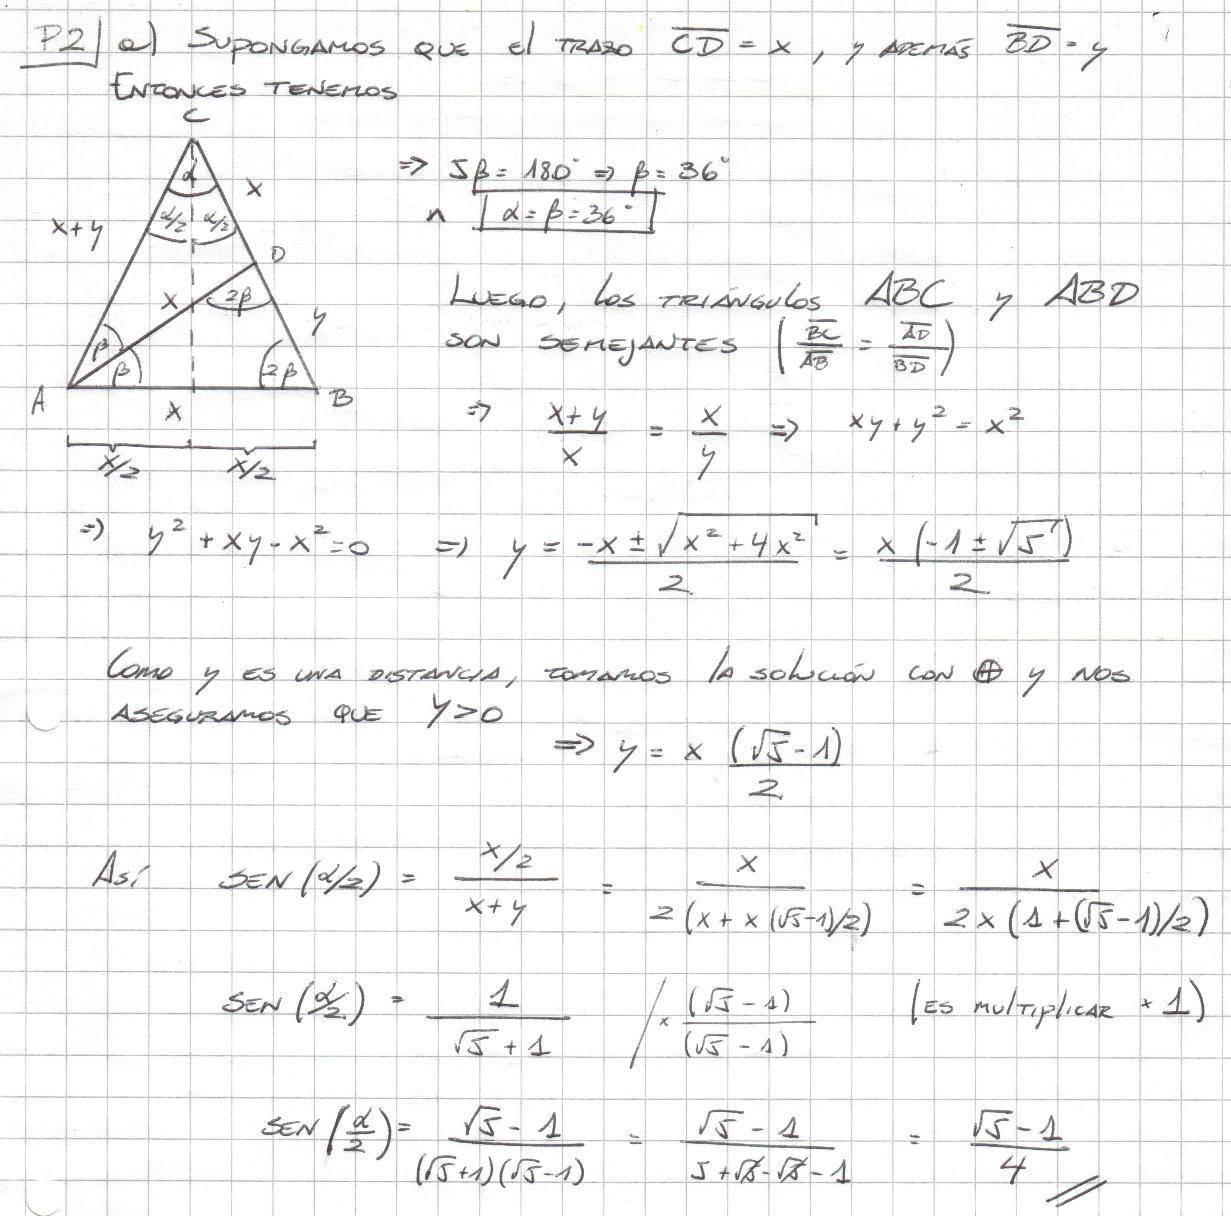 P2 a) SUPONGAMOS QUE El TRAZO CD = x, y ADEMÁS BD = y
ENTONCES TENEMOS
C
α
x
α/2 α/2
x+y
D
x
2β
y
β
β
2β
A
x
B
x/2 x/2
⇒ 5β = 180° ⇒ β = 36°
∧ α = β = 36°
LUEGO, los TRIÁNGulos ABC y ABD
SON SEMEJANTES (BC/AB = AD/BD)
⇒ (x+y)/x = x/y ⇒ xy + y² = x²
⇒ y² + xy - x² = 0 ⇒ y = (-x ± √(x² + 4x²))/2 = x(-1 ± √5)/2
COMO y ES UNA DISTANCIA, TOMAMOS lA SOlUCIÓN CON ⊕ y NOS
ASEGURAMOS QUE y > 0
⇒ y = x (√5 - 1)/2
Así SEN(α/2) = (x/2)/(x+y) = x/(2(x + x(√5-1)/2)) = x/(2x(1 + (√5-1)/2))
SEN(α/2) = 1/(√5 + 1) / × (√5 - 1)/(√5 - 1) (ES MUlTIplICAR × 1)
SEN(α/2) = (√5 - 1)/((√5+1)(√5-1)) = (√5 - 1)/(5 + √5 - √5 - 1) = (√5 - 1)/4 //